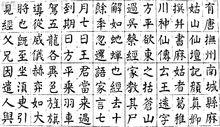 有唐撫州南城縣麻
姑山仙壇記顏真卿
撰并書麻姑者葛稚
川神仙傳云王遠字
方平欲東之括蒼山
過吳蔡經家教其尸
解如蛇蟬也經去十
餘年忽還語家言七
月七日王君當來過
到期日方平乘羽車
駕五龍各異色旌旗
導從威儀赫弈如大
將也既至坐須臾引
見經父兄因遣人與